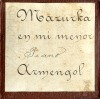 Mazurka
en mi menor
Piano
Armengol